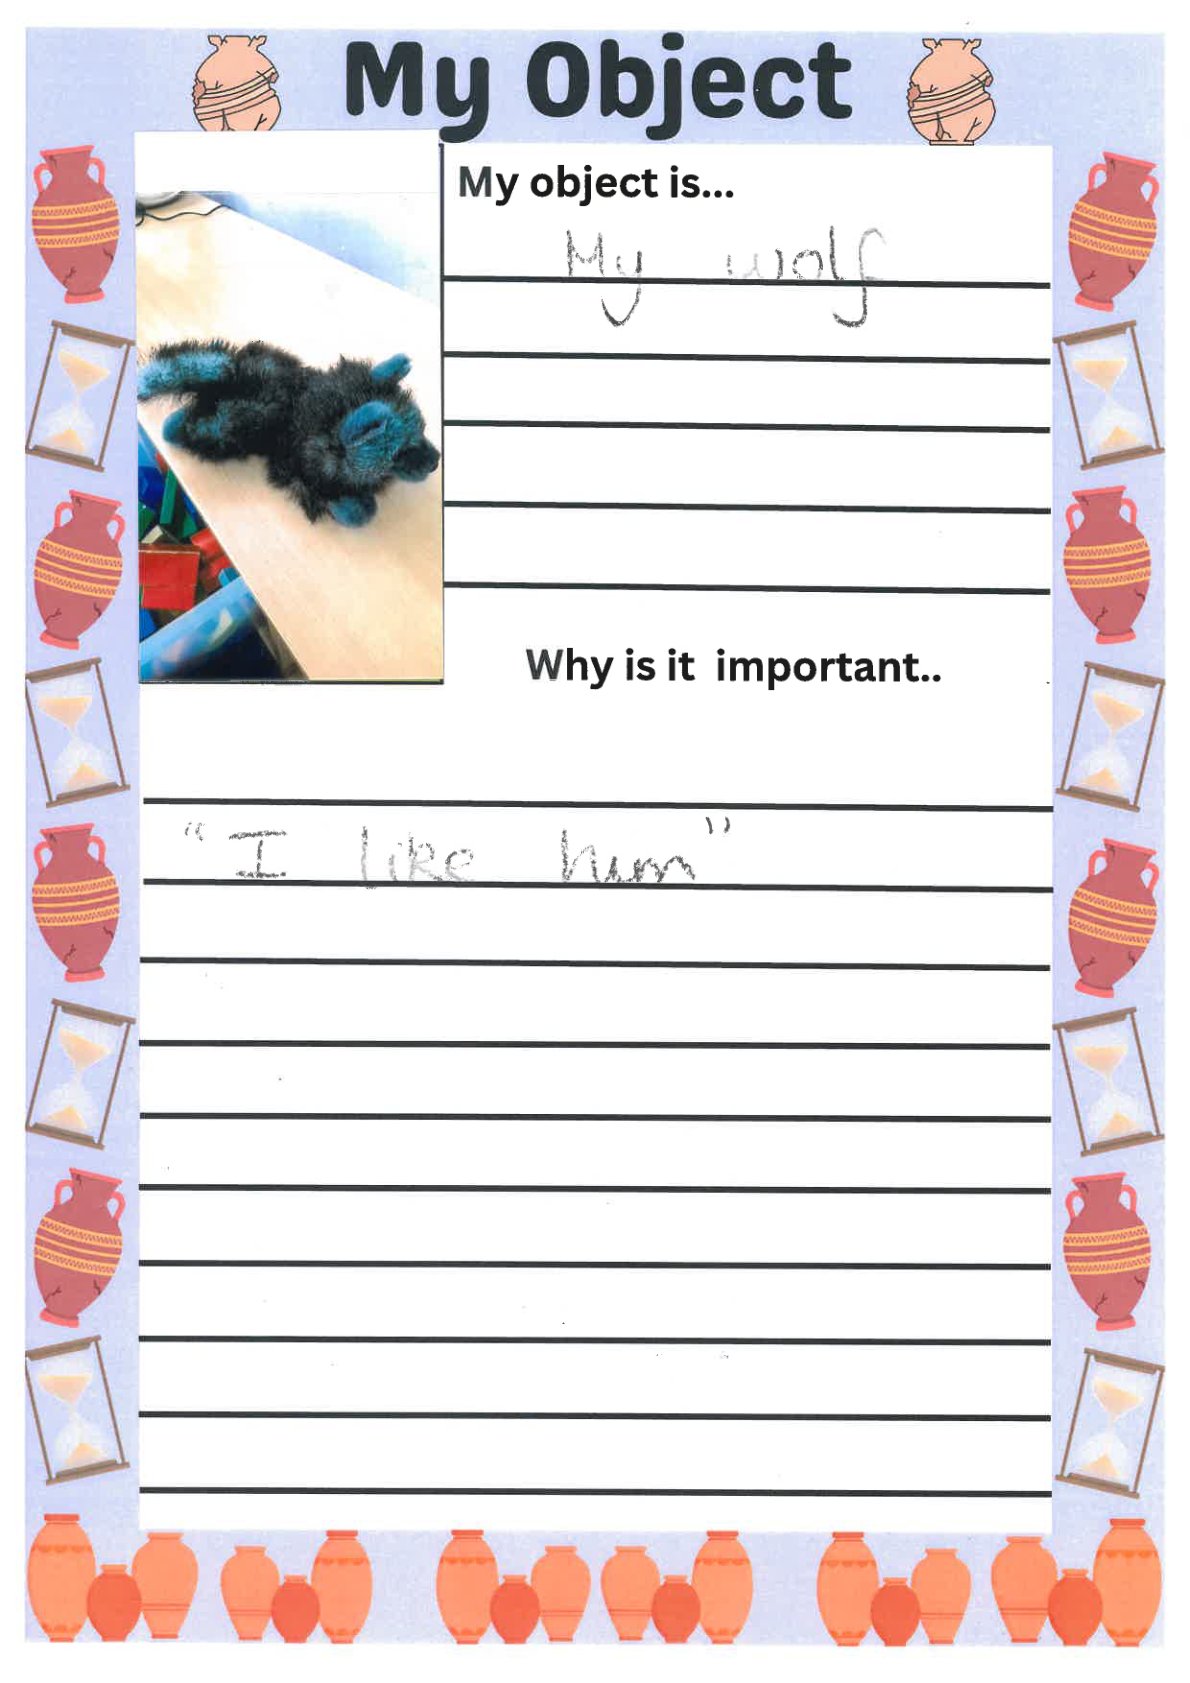 My Object
My object is...
My wolf
Why is it important..
"I like him"